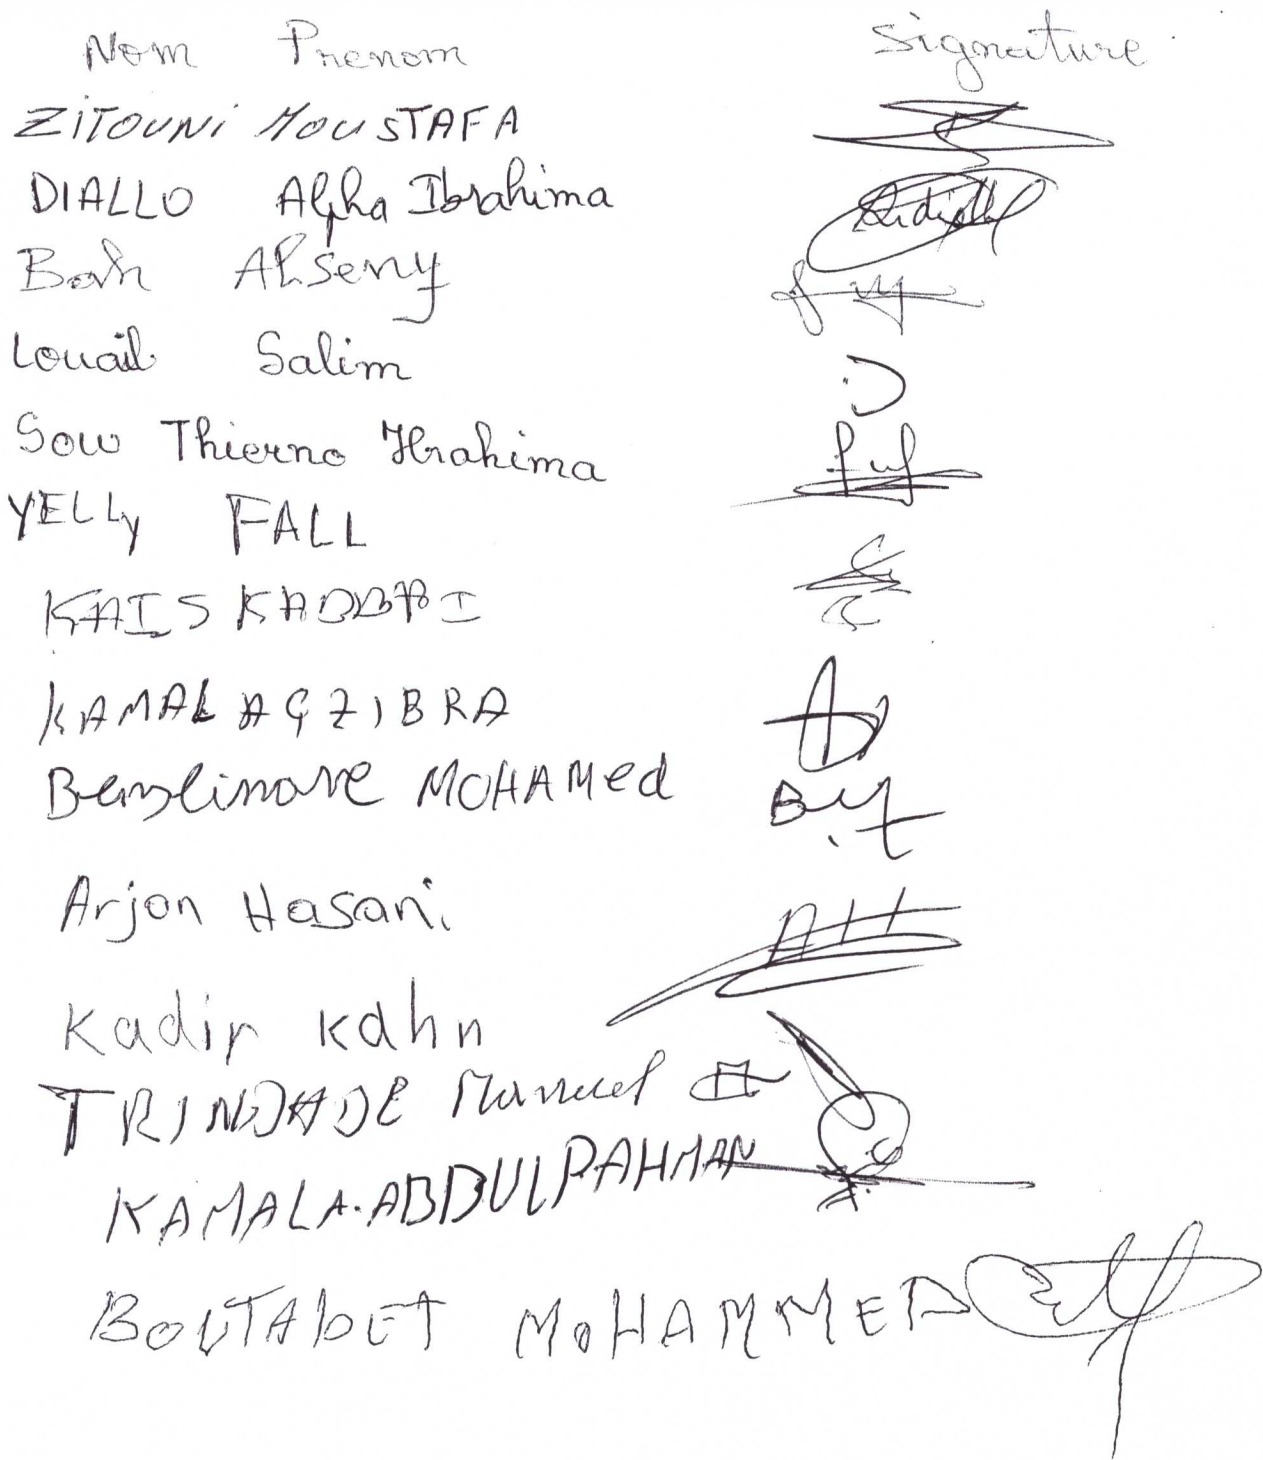 Nom Prenom Signature
ZITOUNI MOUSTAFA
DIALLO Alpha Ibrahima
Bah Alseny
Louail Salim
Sow Thierno Ibrahima
YELLy FALL
KAIS KADDBI
KAMAL AGZIBRA
MOHAMed
Arjon Hasani
AH
Kadir Kahn
TRINDADE Manuel
KAMALA.ABDULRAHMAN
BOUTAbET MOHAMMED